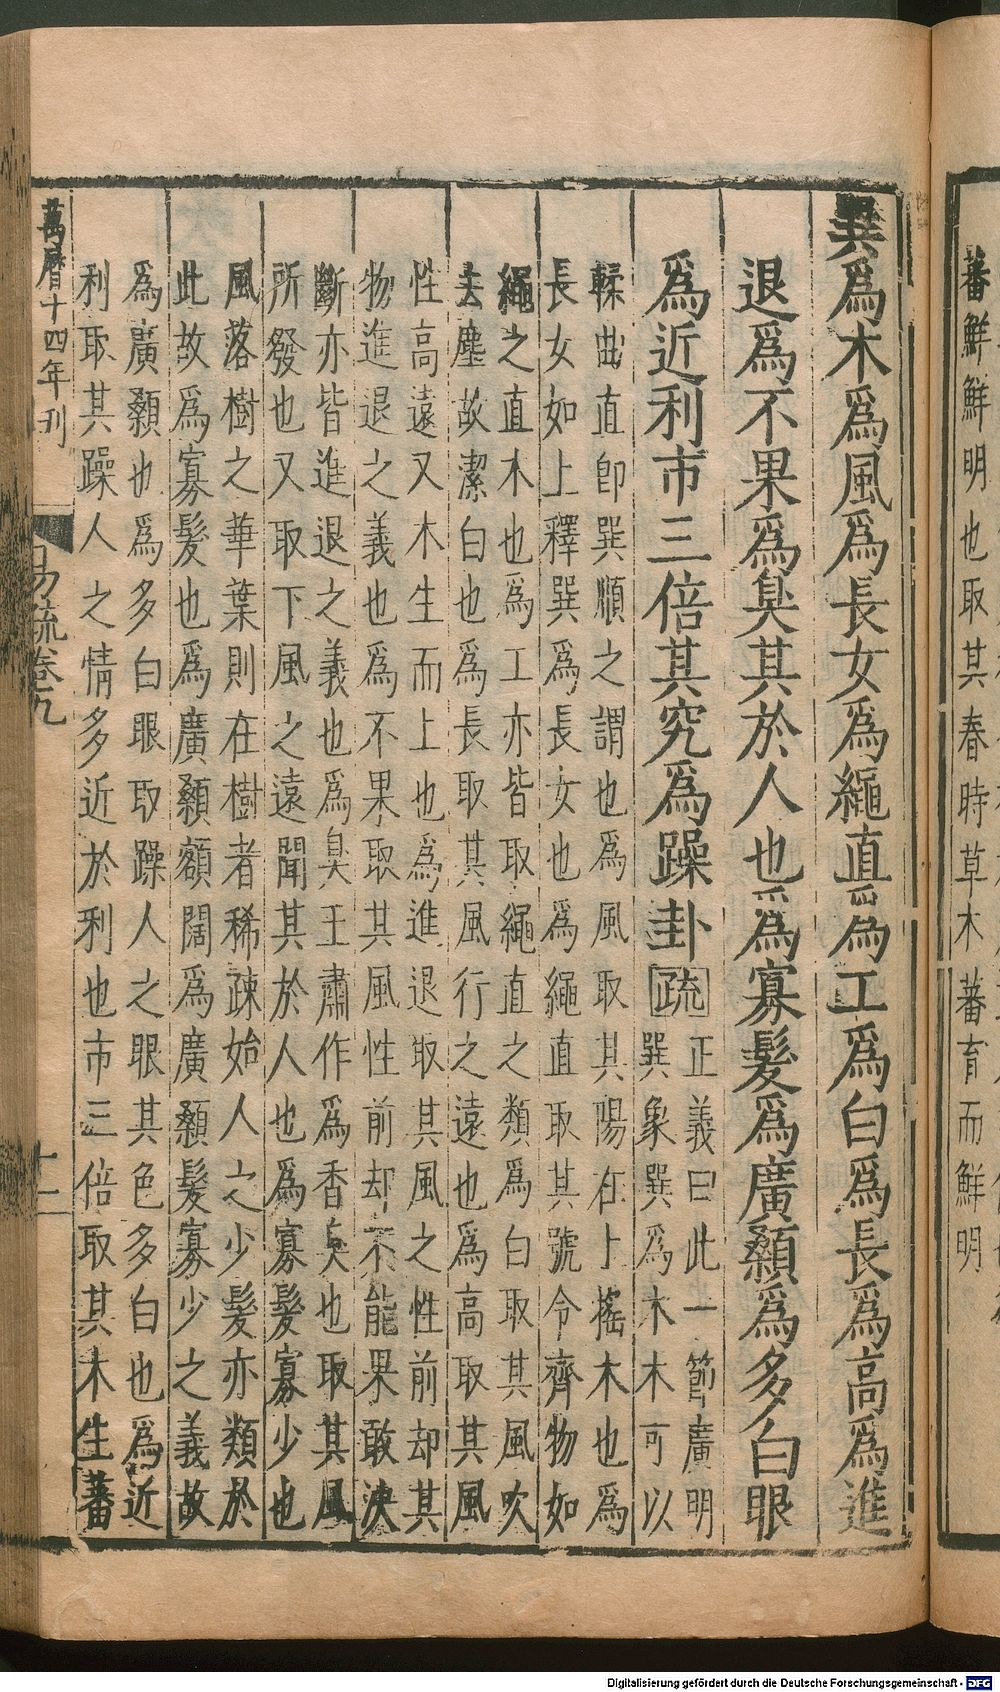 蕃鮮鮮明也取其春時草木蕃育而鮮明
巽爲木爲風爲長女爲繩直爲工爲白爲長爲高爲進
退爲不果爲臭其於人也爲寡髮爲廣顙爲多白眼
爲近利市三倍其究爲躁卦疏
正義曰此一節廣明
巽象巽爲木木可以
輮曲直卽巽順之謂也爲風取其陽在上搖木也爲
長女如上釋巽爲長女也爲繩直取其號令齊物如
繩之直木也爲工亦皆取繩直之類爲白取其風吹
去塵故潔白也爲長取其風行之遠也爲高取其風
性高遠又木生而上也爲進退取其風之性前却其
物進退之義也爲不果取其風性前却不能果敢決
斷亦皆進退之義也爲臭王肅作爲香臭也取其風
所發也又取下風之遠聞其於人也爲寡髮寡少也
風落樹之華葉則在樹者稀疎始人之少髮亦類於
此故爲寡髮也爲廣顙額闊爲廣顙髮寡少之義故
爲廣顙也爲多白眼取躁人之眼其色多白也爲近
利取其躁人之情多近於利也市三倍取其木生蕃
萬曆十四年刊
易疏卷九
十一
Digitalisierung gefördert durch die Deutsche Forschungsgemeinschaft - DFG